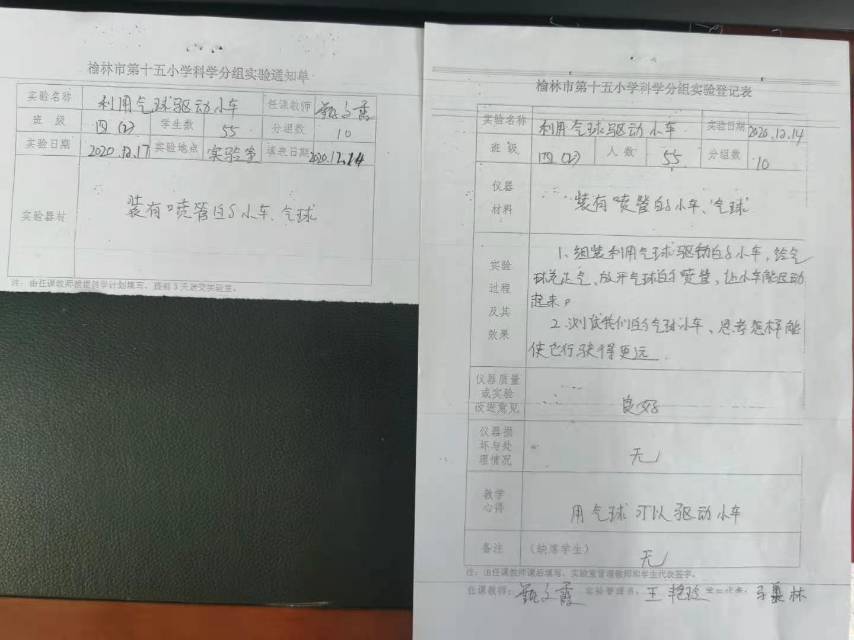 榆林市第十五小学科学分组实验通知单
实验名称 利用气球驱动小车 任课教师 甄文霞
班 级 四(2) 学生数 55 分组数 10
实验日期 2020.12.17 实验地点 实验室 填表日期 2020.12.14
实验器材 装有喷管的小车、气球
注：由任课教师根据教学计划填写，提前3天送交实验室。
榆林市第十五小学科学分组实验登记表
实验名称 利用气球驱动小车 实验日期 2020.12.14
班 级 四(2) 人 数 55 分组数 10
仪器
材料
装有喷管的小车、气球
实验
过程
及其
效果
1、组装利用气球驱动的小车，给气
球充正气、放开气球的喷管，让小车能运动
起来。
2、测试我们的气球小车、思考怎样能
使它行驶得更远
仪器质量
或实验
改进意见
良好
仪器损
坏与处
理情况
无
教学
心得
用气球可以驱动小车
备注 (缺席学生) 无
注：由任课教师课后填写，实验室管理教师和学生代表签字。
任课教师： 甄文霞 实验管理员： 王艳